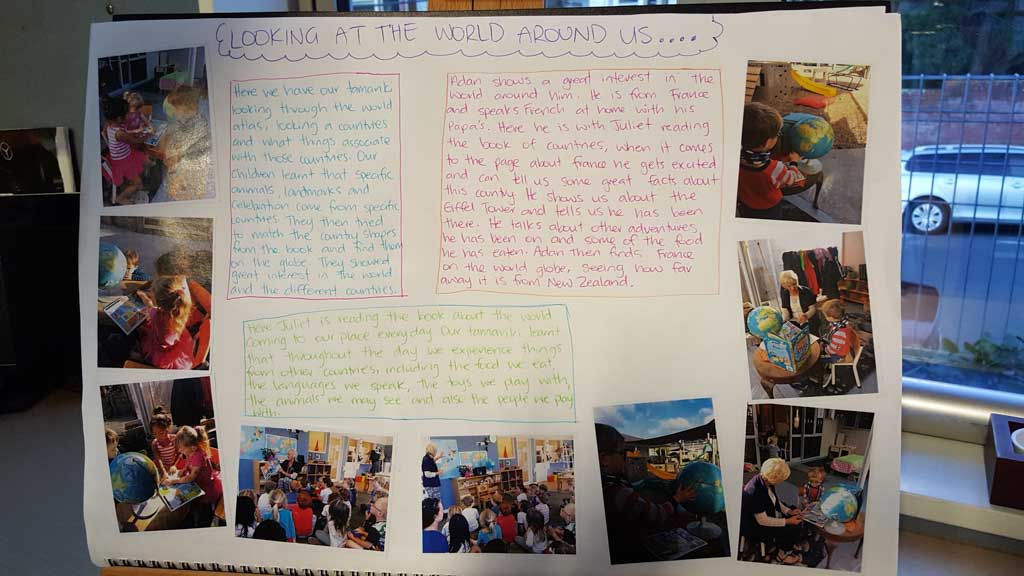 LOOKING AT THE WORLD AROUND US....
Here we have our tamariki
looking through the world
atlas, looking a countries
and what things associate
with those countries. Our
children learnt that specific
animals, landmarks and
celebration come from specific
countries. They then tried
to match the country shapes
from the book and find them
on the globe. They showed
great interest in the world
and the different countries.
Adan shows a great interest in the
world around him. He is from France
and speaks French at home with his
Papa's. Here he is with Juliet reading
the book of countries, when it comes
to the page about france he gets excited
and can tell us some great facts about
this country. He shows us about the
Eiffel Tower and tells us he has been
there. He talks about other adventures
he has been on and some of the food
he has eaten. Adan then finds France
on the world globe, seeing how far
away it is from New Zealand.
Here Juliet is reading the book about the world
coming to our place everyday. Our tamariki learnt
that throughout the day we experience things
from other countries, including the food we eat,
the languages we speak, the toys we play with,
the animals we may see and also the people we play
with.